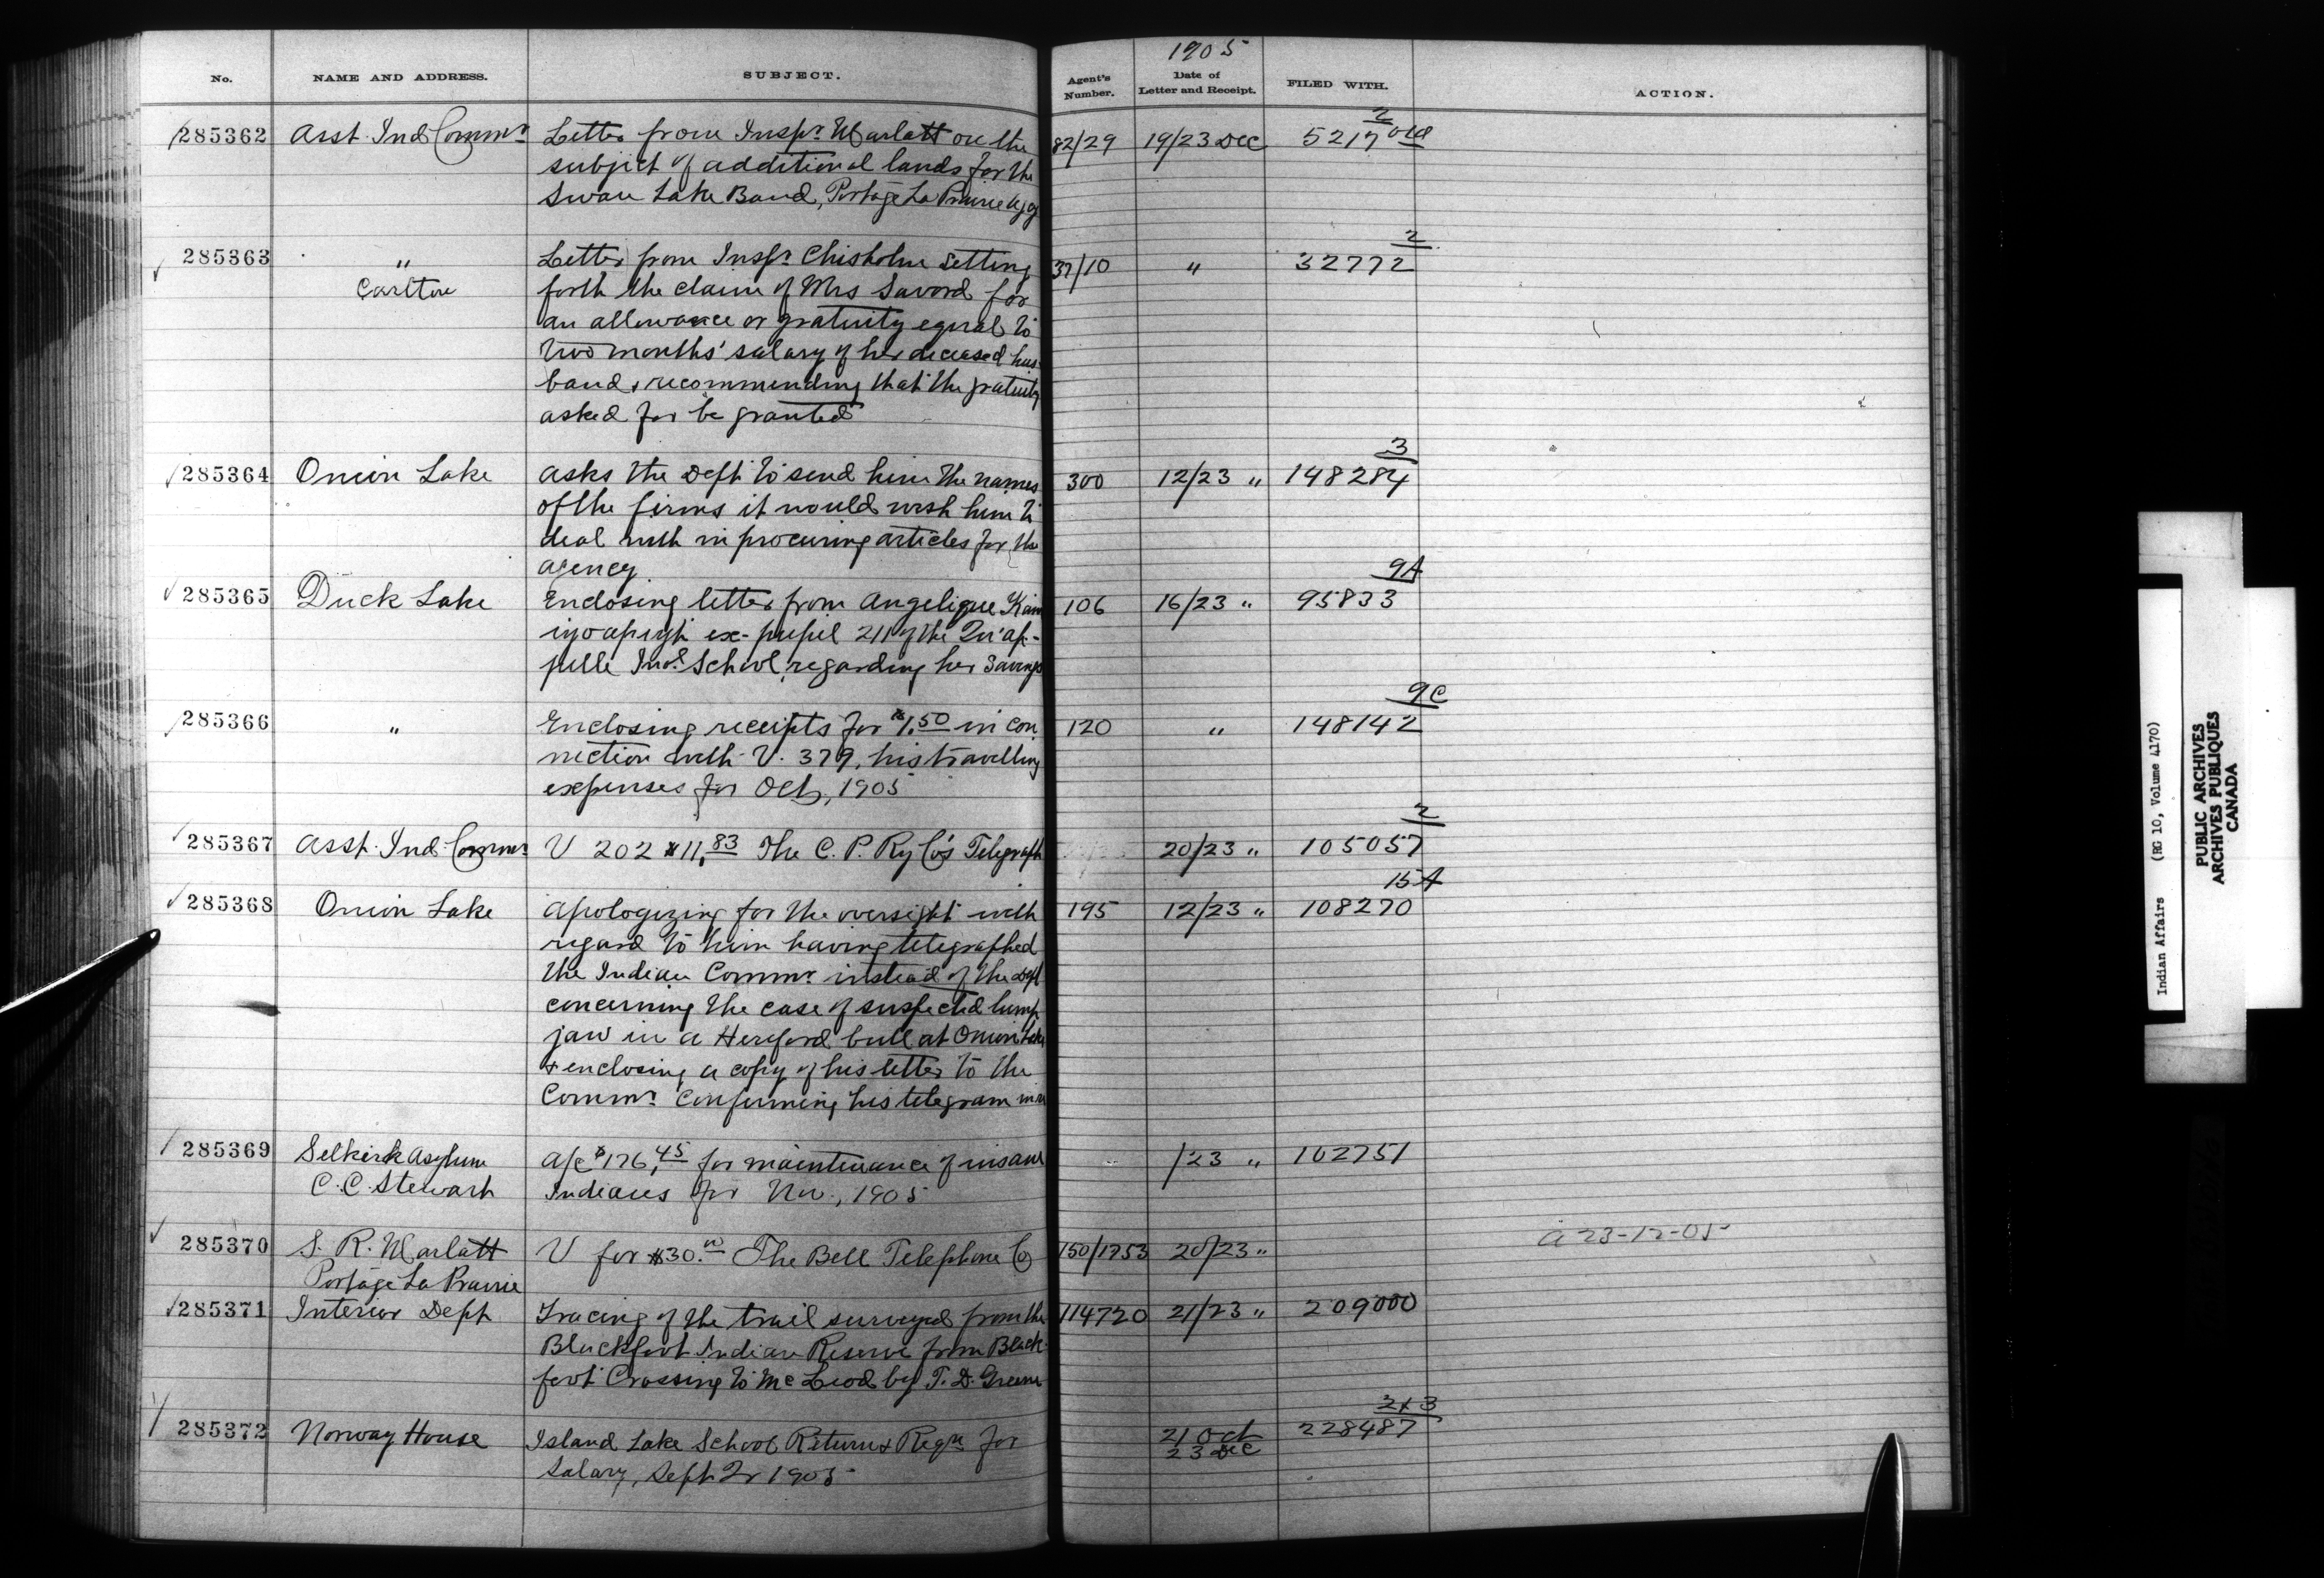 No. NAME AND ADDRESS. SUBJECT. Agent's Number. 1905 Date of Letter and Receipt. FILED WITH. ACTION.
285362 Asst. Ind Commr Letter from Inspr. Marlatt on the 82/29 19/23 Dec 5217 2
subject of additional lands for the
Swan Lake Band, Portage La Prairie Agcy
285363 " Letter from Inspr. Chisholm setting 37/10 " 32772 2
Carlton forth the claim of Mrs Savord for
an allowance or gratuity equal to
two months' salary of her deceased hus-
band & recommending that the gratuity
asked for be granted
285364 Onion Lake Asks the Dept to send him the names 300 12/23 " 148284 3
of the firms it would wish him to
deal with in procuring articles for the
agency.
285365 Duck Lake Enclosing letter from Angelique 106 16/23 " 95833 9A
ex-pupil 211 of the Qu'Ap-
pelle Indl. School, regarding her savings
285366 " Enclosing receipts for $1.50 in con 120 " 148142 9C
nection with V. 379, his travelling
expenses for Oct, 1905
285367 Asst. Ind. Commr V 202 $11.83 The C. P. Ry Co's Telegraph 20/23 " 105057 2
285368 Onion Lake Apologizing for the oversight with 195 12/23 " 108270 15A
regard to him having telegraphed
the Indian Commr. instead of the Dept
concerning the case of suspected lump
jaw in a Hereford bull at Onion Lake
& enclosing a copy of his letter to the
Commr. confirming his telegram in re
285369 Selkirk Asylum A/c $176.45 for maintenance of insane /23 " 102751
C. C. Stewart Indians for Nov., 1905
285370 S. R. Marlatt V for $30.00 The Bell Telephone Co 150/1753 20/23 " A 23-12-05
Portage La Prairie
285371 Interior Dept Tracing of the trail surveyed from the 114720 21/23 " 209000
Blackfoot Indian Reserve from Black-
foot Crossing to McLeod by T. D. Green
285372 Norway House Island Lake School Return & Reqn for 21 Oct 228487 2 & 3
Salary, Sept Qr 1905 23 Dec
Indian Affairs (RG 10, Volume 4170)
PUBLIC ARCHIVES
ARCHIVES PUBLIQUES
CANADA